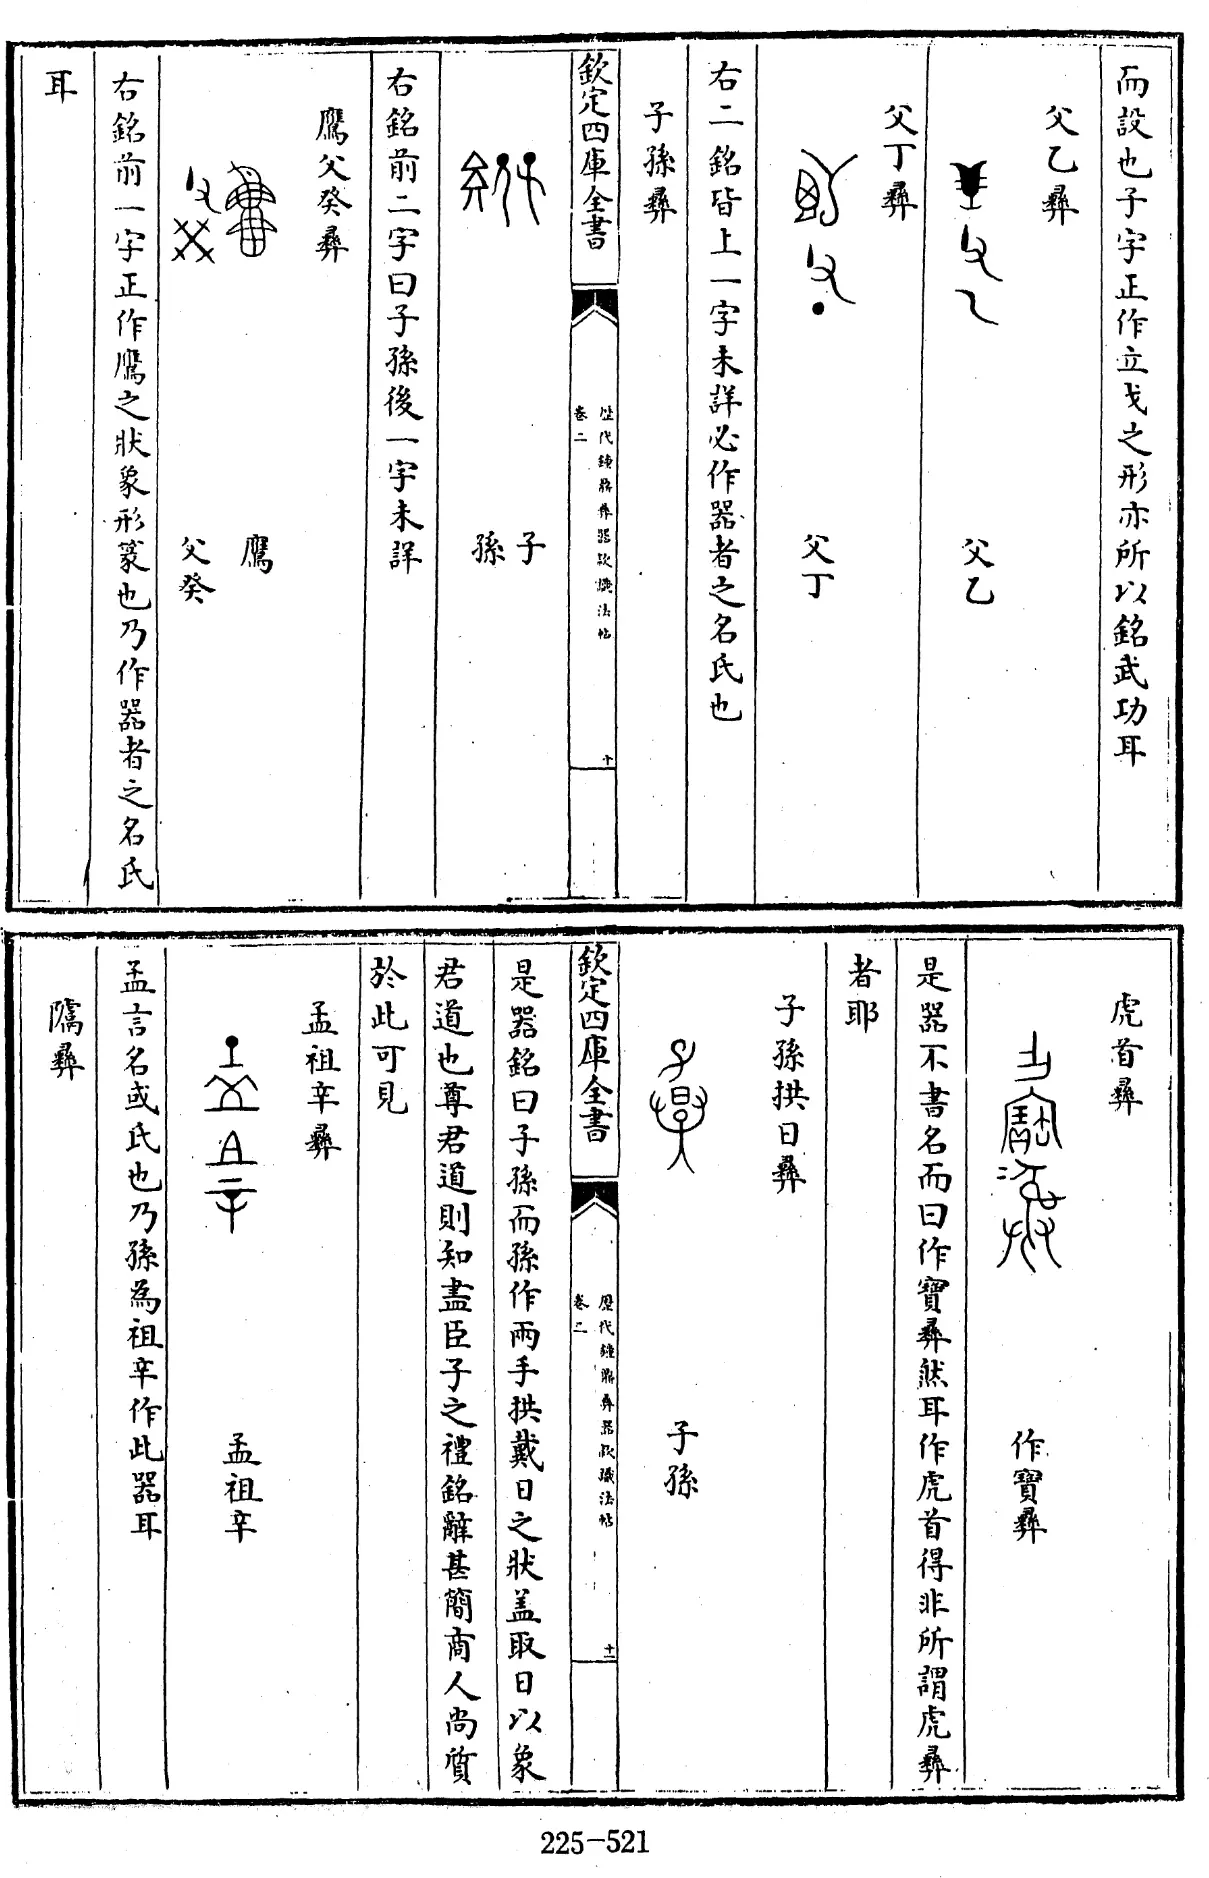 而設也子字正作立戈之形亦所以銘武功耳
父乙彝
父乙
父丁彝
父丁
右二銘皆上一字未詳必作器者之名氏也
子孫彝
欽定四庫全書
歷代鐘鼎彝器款識法帖
卷二
十
子
孫
右銘前二字曰子孫後一字未詳
鷹父癸彝
鷹
父癸
右銘前一字正作鷹之狀象形篆也乃作器者之名氏
耳
虎首彝
作寶彝
是器不書名而曰作寶彝然耳作虎首得非所謂虎彝
者耶
子孫拱日彝
子孫
欽定四庫全書
歷代鐘鼎彝器款識法帖
卷二
十一
是器銘曰子孫而孫作兩手拱戴日之狀盖取日以象
君道也尊君道則知盡臣子之禮銘辭甚簡商人尚質
於此可見
孟祖辛彝
孟祖辛
孟言名或氏也乃孫為祖辛作此器耳
彝
225-521